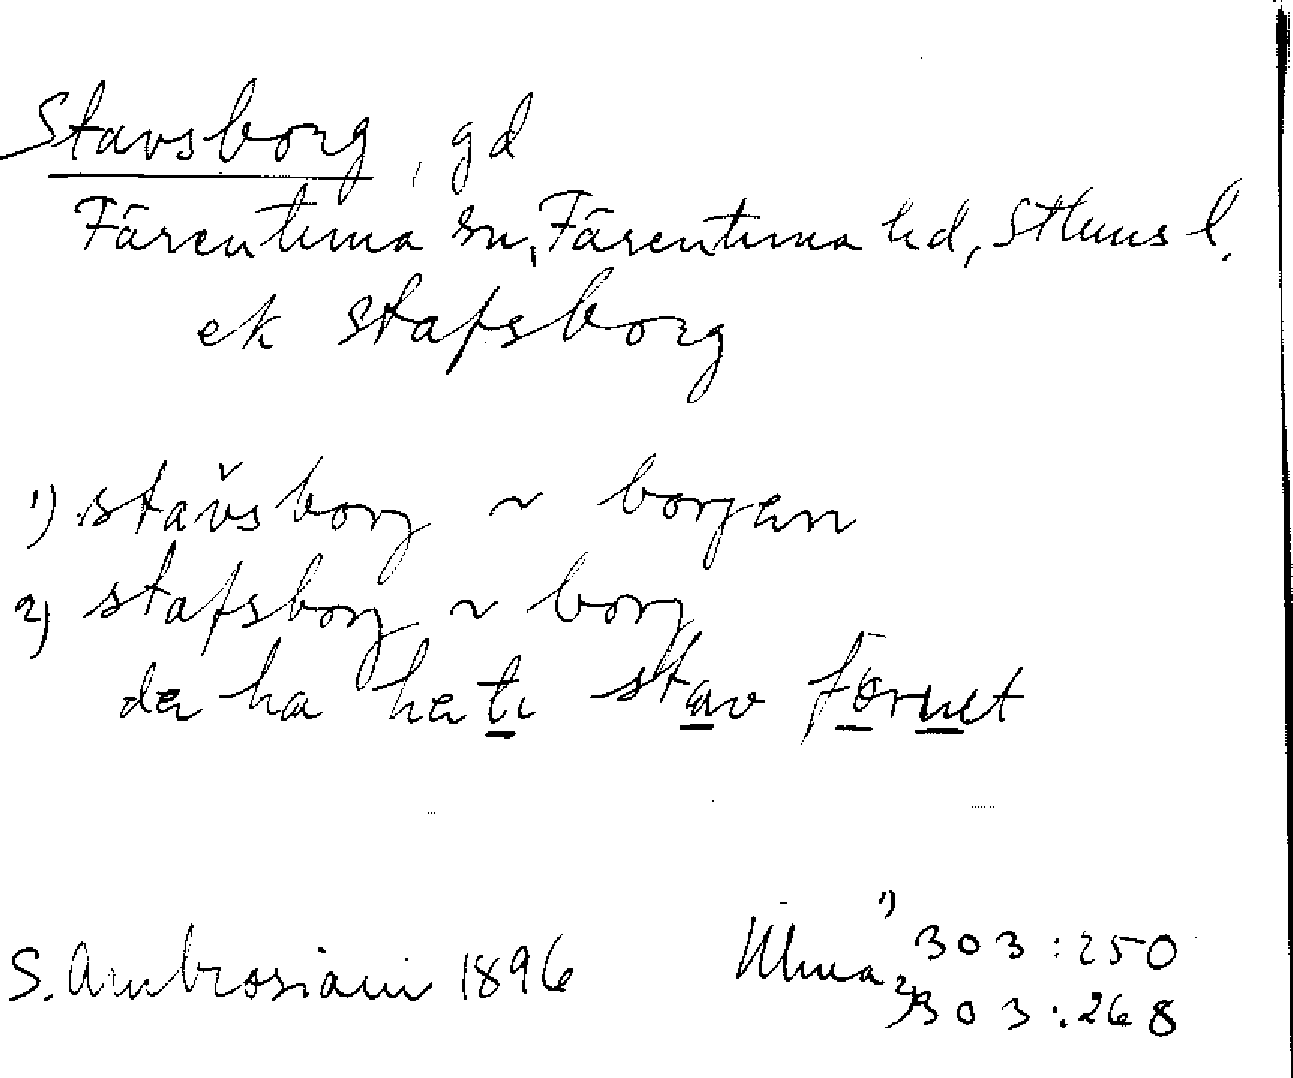 Stavsborg, gd
Färentuna sn, Färentuna hd, Sthms l.
ek Stafsborg
1) stav̌sborg ~ borgen
2) stafsborg ~ borg
de ha heti stav fornet
S. Ambrosiani 1896
Ulma 1) 303:250
2) 303:268